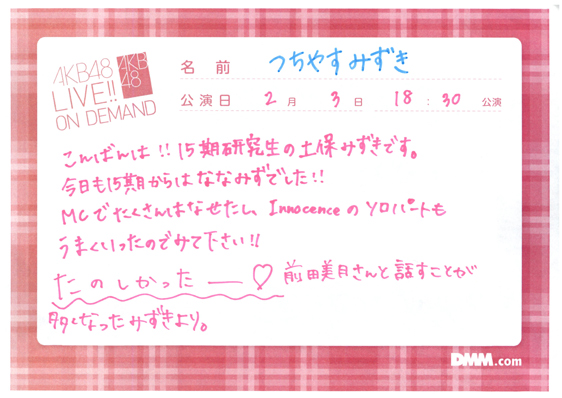 AKB48
LIVE!!
ON DEMAND
AKB
48
名前 つちやすみずき
公演日 2月 3日 18:30 公演
こんばんは!!15期研究生の土保みずきです。
今日も15期からはななみずでした!!
MCでたくさんはなせたし、Innocenceのソロパートも
うまくいったのでみて下さい!!
たのしかったー♡ 前田美月さんと話すことが
多くなったみずきより。
DMM.com